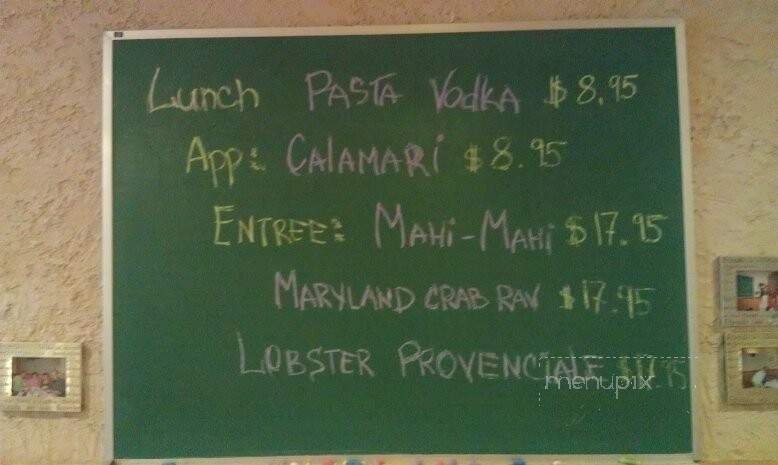 Lunch PASTA VodkA $8.95
App: CALAMARi $8.95
ENTREE: MAHi-MAHi $17.95
MARYLAND CRAB RAV $17.95
LOBSTER PROVENCiALE
menupix